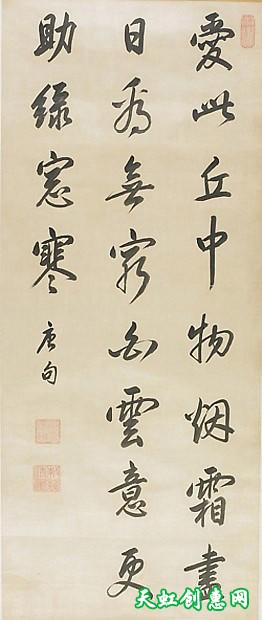 愛此丘中物烟霜盡
日看無窮白雲意更
助綠窓寒
唐句
天虹创意网